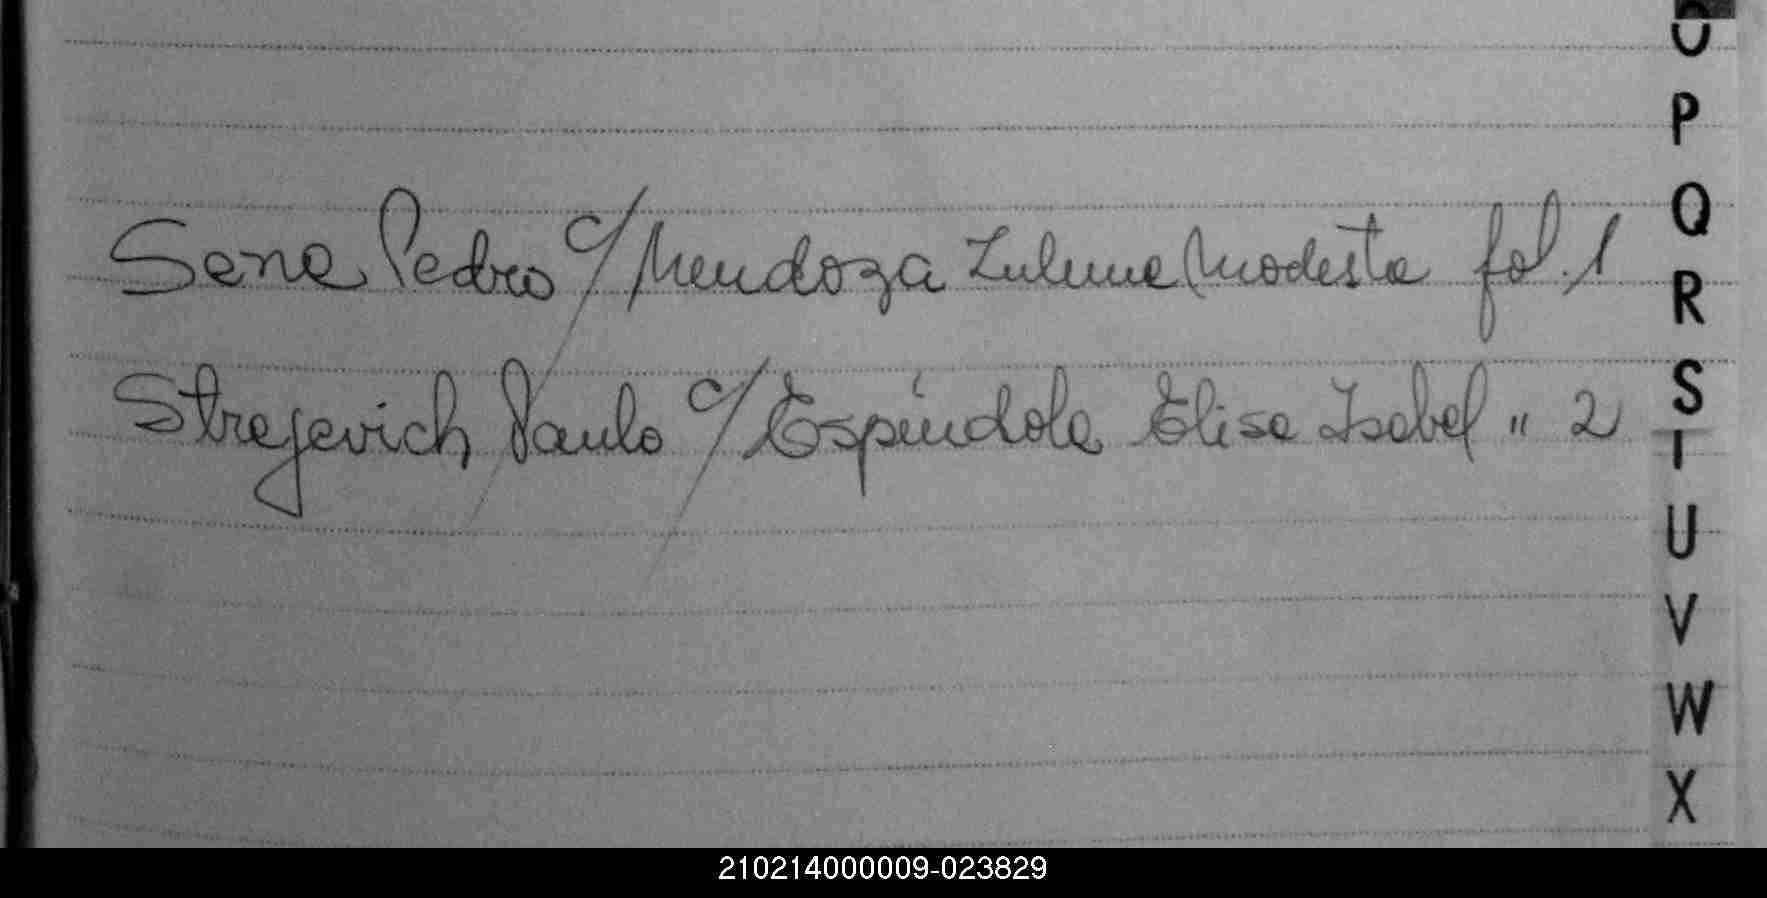 O
P
Q
Sena Pedro c/ Mendoza Zulema Modesta fol. 1
R
S
Strejevich Paulo c/ Espíndola Elisa Isabel " 2
T
U
V
W
X
210214000009-023829